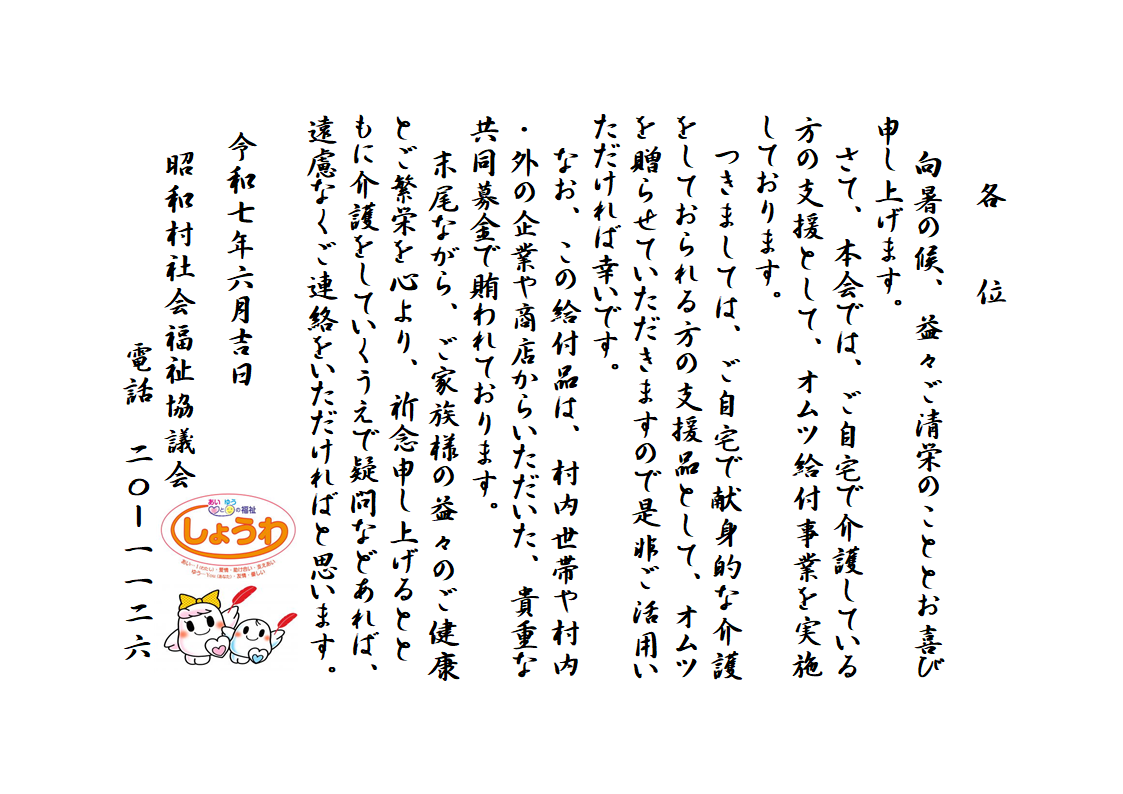 各　位
向暑の候、益々ご清栄のこととお喜び
申し上げます。
さて、本会では、ご自宅で介護している
方の支援として、オムツ給付事業を実施
しております。
つきましては、ご自宅で献身的な介護
をしておられる方の支援品として、オムツ
を贈らせていただきますので是非ご活用い
ただければ幸いです。
なお、この給付品は、村内世帯や村内
・外の企業や商店からいただいた、貴重な
共同募金で賄われております。
末尾ながら、ご家族様の益々のご健康
とご繁栄を心より、祈念申し上げるとと
もに介護をしていくうえで疑問などあれば、
遠慮なくご連絡をいただければと思います。
令和七年六月吉日
昭和村社会福祉協議会
電話　二〇ー一一二六
あいとゆうの福祉
しょうわ
あい…I（わたし）・愛情・助け合い・支えあい
ゆう…You（あなた）・友情・優しい